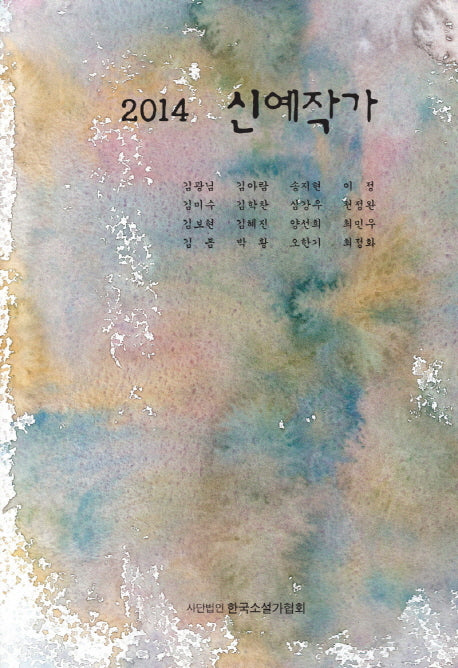 2014 신예작가
김광님 김아람 송지현 이 정
김미수 김학찬 심강우 전정완
김보현 김혜진 양선희 최민우
김 봄 박 황 오한기 최정화
사단법인 한국소설가협회